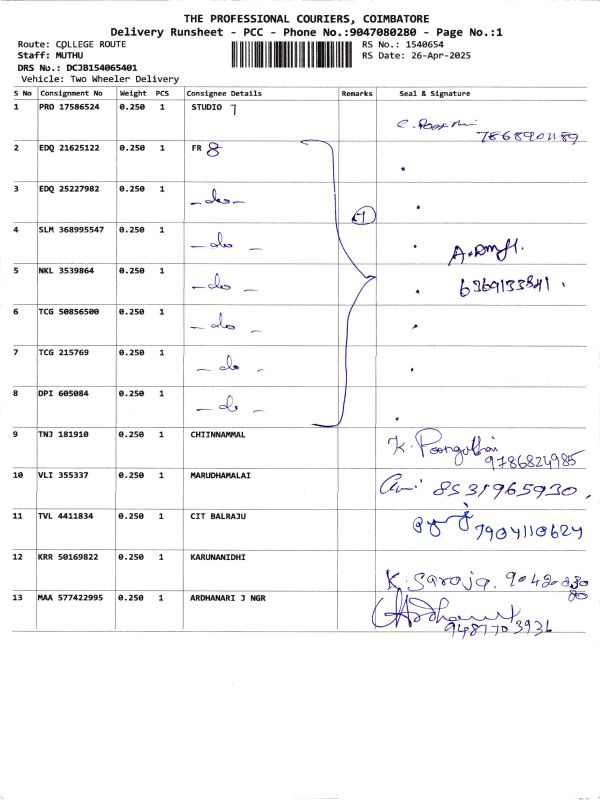 THE PROFESSIONAL COURIERS, COIMBATORE
Delivery Runsheet - PCC - Phone No.:9047080280 - Page No.:1
Route: COLLEGE ROUTE RS No.: 1540654
Staff: MUTHU RS Date: 26-Apr-2025
DRS No.: DCJB154065401
Vehicle: Two Wheeler Delivery
S No Consignment No Weight PCS Consignee Details Remarks Seal & Signature
1 PRO 17586524 0.250 1 STUDIO 7
7868901189
2 EDQ 21625122 0.250 1 FR 8
3 EDQ 25227982 0.250 1 -do-
7
4 SLM 368995547 0.250 1 - do -
5 NKL 3539864 0.250 1 - do -
6369133841.
6 TCG 50856500 0.250 1 - do -
7 TCG 215769 0.250 1 - do -
8 DPI 605084 0.250 1 - do -
9 TNJ 181910 0.250 1 CHIINNAMMAL K.
9786824985
10 VLI 355337 0.250 1 MARUDHAMALAI 8531965930,
11 TVL 4411834 0.250 1 CIT BALRAJU
7904110624
12 KRR 50169822 0.250 1 KARUNANIDHI
K. Saroja.
13 MAA 577422995 0.250 1 ARDHANARI J NGR
9487703931